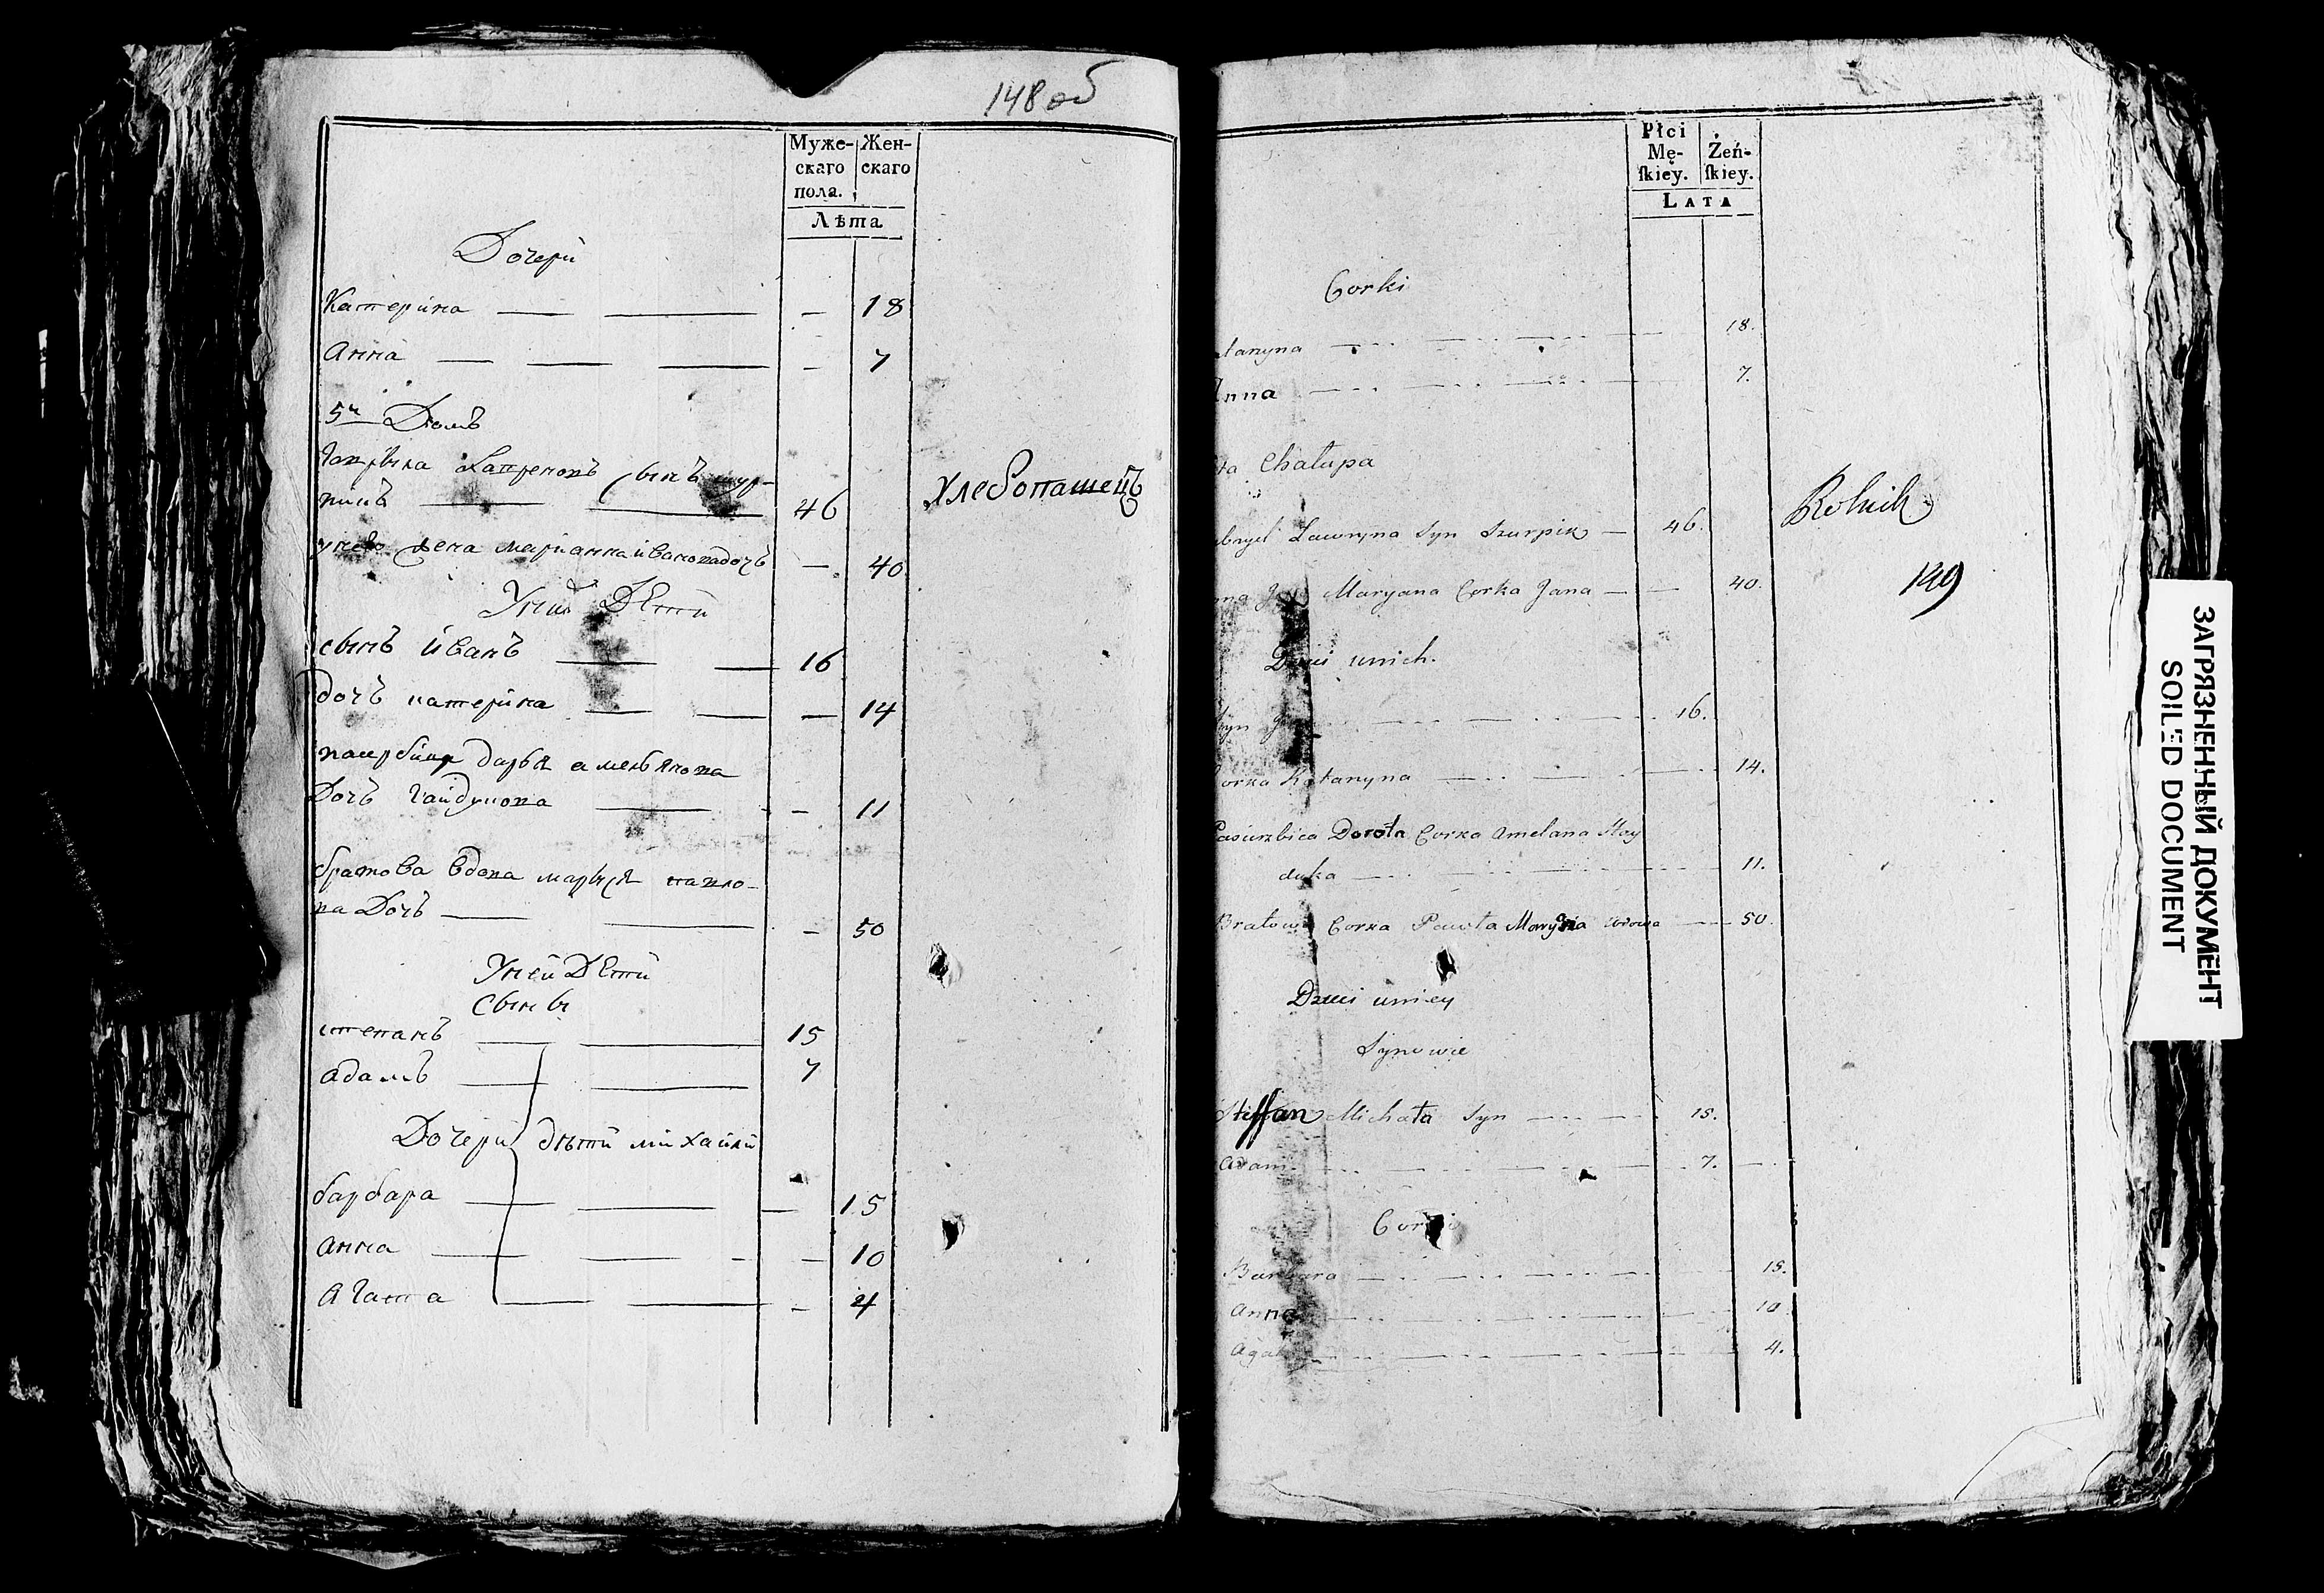 148 об
Муже- Жен-
скаго скаго
пола.
Лѣта
Дочери
Катерина — — — 18
Анна — — — — 7
5й Домъ
Лавреновъ сынъ шур-
пикъ — — 46 хлебопашецъ
жена марианна иванова дочъ — 40
У них Дети
сынъ иванъ — — 16
дочъ катерина — — — 14
пасербица дарья амельянова
Дочъ гайдукова — — 11
братова вдова марыся павло-
ва Дочъ — — — 50
У ней Дети
сыны
степанъ — — 15
адамъ — — 7
Дочери дѣти михайли
барбара — — — 15
анна — — — — 10
Агата — — — 4
Płci
Mę- Żeń-
ſkiey. ſkiey.
LATA
Corki
tarzyna — — 18.
Anna — — 7.
ta Chałupa
bryel Lawryna Syn Szurpik — 46. Rolnik
na Maryana Corka Jana — — 40. 149
Dzieci unich.
Syn — — 16.
Corka Katarzyna — — 14.
Pasierzbica Dorota Corka Amelana Hay
duka — — 11.
Bratowa Corka Pawła Maryśia wdowa — 50.
Dzieci uniey
Synowie
Steffan Michała Syn — — 15.
Adam — — 7. —
Corki
Barbara — — 15.
Anna — — 10.
Agata — — 4.
ЗАГРЯЗНЕННЫЙ ДОКУМЕНТ
SOILED DOCUMENT